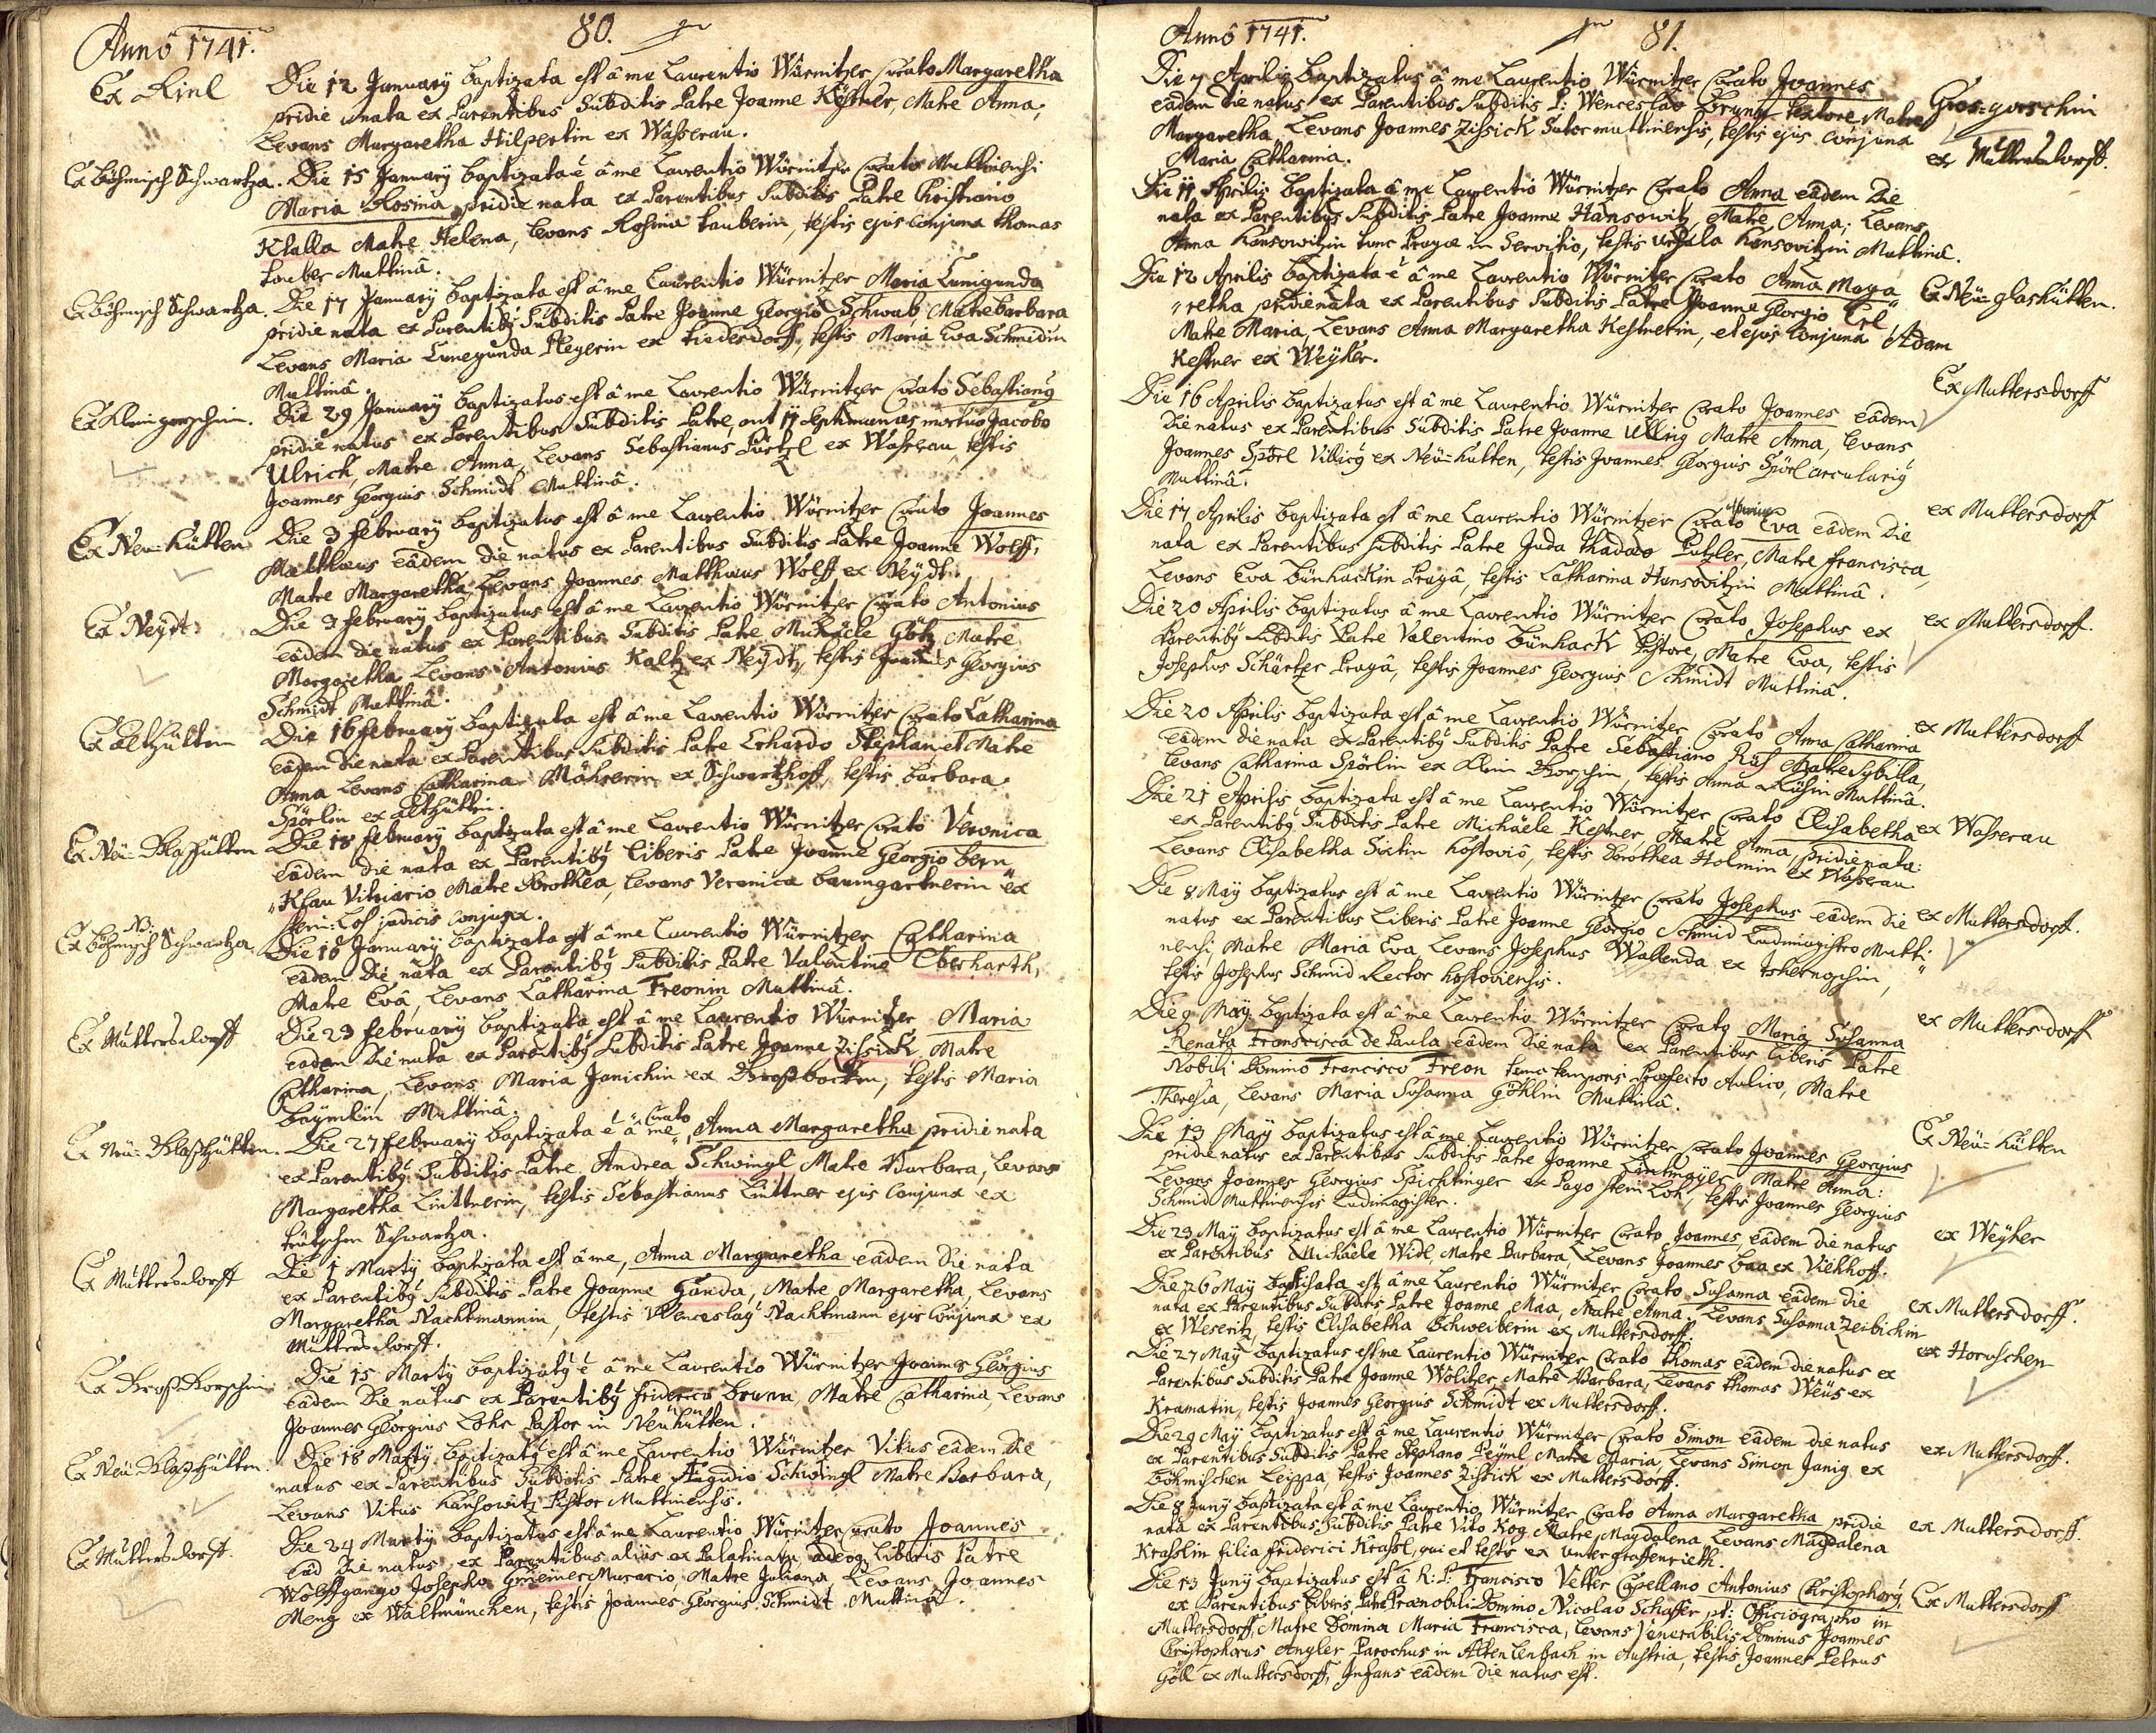 Anno 1741.
80.
Ex Rinl
Die 12 January baptizata est â me Laurentio Würnitzer Curato Margaretha
pridie nata ex Parentibus Subditis Patre Joanne Kestner, Matre Anna,
Levans Margaretha Hilpertin ex Wasserau.
Ex böhmisch Schwartza.
Die 15 January baptizata ê â me Laurentio Würnitzer Curato Muttinensi
Maria Rosina pridie nata ex Parentibus Subditis Patre Christiano
Klalla Matre Helena, Levans Rosina Tauberin, testis ejus Conjunx Thomas
Tauber Muttinâ.
Ex böhmisch Schwartza.
Die 17 January baptizata est â me Laurentio Würnitzer Maria Cunigunda
pridie nata ex Parentibꝰ Subditis Patre Joanne Georgio Schwab, Matre Barbara
Levans Maria Cunegunda Plegerin ex Tiedesdorff, testis Maria Eva Schmidin
Muttinâ.
Ex Kleingorschin.
Die 29 January baptizatus est â me Laurentio Würnitzer Curato Sebastianꝰ
pridie natus ex Parentibus Subditis Patre ant 17 septimanas mortuo Jacobo
Ulrich, Matre Anna, Levans Sebastianus Pürtzl ex Wasserau, testis
Joannes Georgius Schmidt Muttinâ.
Ex Neu=hütten
Die 3 February baptizatus est â me Laurentio Würnitzer Curato Joannes
Matthaeus eâdem die natus ex Parentibus Subditis Patre Joanne Wolff,
Matre Margaretha, Levans Joannes Matthaeus Wolff ex Neydt.
Ex Neydt.
Die 3 February baptizatus est â me Laurentio Würnitzer Curato Antonius
eâdem die natus ex Parentibus Subditis Patre Michaele Götz Matre
Margaretha Levans Antonius Kaltz ex Neydt, testis Joannes Georgius
Schmidt Muttinâ.
Ex althütten
Die 16 February baptizata est â me Laurentio Würnitzer Curato Catharina
eâdem die nata ex Parentibus Subditis Patre Erhardo Stephan et Matre
Anna Levans Catharina Mährerin ex Schwartzhoff, testis barbara
Spörlin ex althüttin.
Ex Neu=Glaßhütten
Die 18 February baptizata est â me Laurentio Würnitzer Curato Veronica
eâdem die nata ex Parentibꝰ Liberis Patre Joanne Georgio Bern
„Klau Vitriario Matre Dorothea, Levans Veronica baumgartnerin ex
Stein=Loh judicis conjunx.
NB
Ex böhmisch Schwartza.
Die 18 January baptizata est â me Laurentio Würnitzer Catharina
eâdem die nata ex Parentibꝰ Subditis Patre Valentino Eberharth,
Matre Evâ, Levans Catharina Freonin Muttinâ.
Ex Muttersdorff
Die 23 February baptizata est â me Laurentio Würnitzer Maria
eadem die nata ex Parentibꝰ Subditis Patre Joanne Zissick Matre
Catharina, Levans Maria Janichin ex Großbocken, testis Maria
Baymlin Muttinâ.
Ex Neu=Glaßhütten.
Die 27 February baptizata ê â me Curato, Anna Margaretha pridie nata
ex Parentibꝰ Subditis Patre Andrea Schwingl Matre Barbara, Levans
Margaretha Linttnerin, testis Sebastianus Linttner ejus Conjunx ex
teütschen Schwartza.
Ex Muttersdorff
Die 1 Marty baptizata est â me, Anna Margaretha eâdem die nata
ex Parentibꝰ Subditis Patre Joanne Ganda, Matre Margaretha, Levans
Margaretha Nachtmannin, testis Wenceslaꝰ Nachtmann ejus Conjunx ex
Muttersdorff.
Ex Groß Gorschin
Die 15 Marty baptizatꝰ ê â me Laurentio Würnitzer Joannes Georgius
eâdem die natus ex Parentibꝰ Friderico brunn, Matre Catharina, Levans
Joannes Georgius Lohr Pastor in Neühütten.
Ex Neu=Glaßhütten
Die 18 Marty baptizatꝰ est â me Laurentio Würnitzer Vitus eâdem die
natus ex Parentibus Subditis Patre Aegidio Schwingl Matre Barbara,
Levans Vitus Hansowitz Pistor Muttinensis.
Ex Muttersdorff.
Die 24 Marty baptizatus est â me Laurentio Würnitzer Curato Joannes
eâd die natus ex Parentibus aliis ex Palatinatu adeoq Liberis Patre
Wolffgango Josepho Gmeiner Murario, Matre Juliana Levans Joannes
Meng ex Waltmünchen, testis Joannes Georgius Schmidt Muttinâ.
Anno 1741.
81.
Die 7 Aprilis baptizatus â me Laurentio Würnitzer Curato Joannes
eâdem die natus ex Parentibus Subditis P: Wenceslao Brunn textore, Matre
Margaretha Levans Joannes Zissick Sutor muttinensis, testis ejus conjunx
Maria Catharina.
Gros=gorschin
ex Muttersdorff.
Die 11 Aprilis baptizata â me Laurentio Würnitzer Curato Anna eâdem die
nata ex Parentibus Subditis Patre Joanne Hansowitz, Matre Anna, Levans
Anna Hansowitzin tunc Pragae in Servitio, testis Ursula Hansovitzin Muttinâ.
Die 12 Aprilis baptizata ê â me Laurentio Würnitzer Curato Anna Maga
„retha pridie nata ex Parentibus Subditis Patre Joanne Georgio Erl
Matre Maria, Levans Anna Margaretha Kestnerin, et ejus Conjunx Adam
Kestner ex Weyher.
Ex Neu=glashütten.
Die 16 Aprilis baptizatus est â me Laurentio Würnitzer Curato Joannes eâdem
die natus ex Parentibus Subditis Patre Joanne Ullrig Matre Anna, Levans
Joannes Spörl Villicꝰ ex Neü=hutten, testis Joannes Georgius Spörl arculariꝰ
Muttinâ.
Ex Muttersdorff
Die 17 Aprilis baptizata est â me Laurentio Würnitzer Curato Eva eâdem die
nata ex Parentibus Subditis Patre Juda Thadaeo Putzler, Matre Francisca,
Levans Eva Bünhackin Pragâ, testis Catharina Hansovitzin Muttinâ.
ex Muttersdorff
Die 20 Aprilis baptizatus â me Laurentio Würnitzer Curato Josephus ex
Parentibꝰ Subditis Patre Valentino Bünhack Pistore, Matre Eva, testis
Josephus Schärtzer Pragâ, testis Joannes Georgius Schmidt Muttinâ.
ex Muttersdorff.
Die 20 Aprilis baptizata est â me Laurentio Würnitzer Curato Anna Catharina
eâdem die nata ex Parentibꝰ Subditis Patre Sebastiano Rüs Matre Sybilla,
Levans Catharina Spörlin ex Klein Gorschin, testis Anna Rüsin Muttinâ.
ex Muttersdorff
Die 21 Aprilis baptizata est â me Laurentio Würnitzer Curato Elisabetha
ex Parentibꝰ Subditis Patre Michaele Kestner Matre Anna pridie nata:
Levans Elisabetha Sixtin hostoviô, testis Dorothea Holmin ex Wasserau.
ex Wasserau
Die 8 May baptizatus est â me Laurentio Würnitzer Curato Josephus eâdem die
natus ex Parentibus Liberis Patre Joanne Georgio Schmid Ludimagistro Mutti„
nensi Matre Maria Eva Levans Josephus Wallenda ex Tshernoschin,
testis Josephus Schmid Rector hostoviensis.
ex Muttersdorff.
Die 9 May baptizata est â me Laurentio Würnitzer Curato Maria Susanna
Renata Franscisca de Paula eâdem die nata ex Parentibus liberis Patre
Nobili Domino Francisco Freon tunc temporis Praefecto Aulico, Matre
Theresia, Levans Maria Susanna Göhlin Muttinâ.
ex Muttersdorff
Die 13 May baptizatus est â me Laurentio Würnitzer Curato Joannes Georgius
pridie natus ex Parentibus Subditis Patre Joanne Lintmayer, Matre Anna:
Levans Joannes Georgius Spichtinger ex Pago Stein Loh, testis Joannes Georgius
Schmid Muttinensis Ludimagister.
Ex Neü=hütten
Die 23 May baptizatus est â me Laurentio Würnitzer Curato Joannes eâdem die natus
ex Parentibus Michaele Widl, Matre Barbara, Levans Joannes baa ex Viehhoff.
ex Weyher
Die 26 May baptisata est â me Laurentio Würnitzer Curato Susanna eâdem die
nata ex Parentibus Subditis Patre Joanne Maa, Matre Anna: Levans Susanna Zeibichin
ex Weseritz, testis Elisabetha Schweiberin ex Muttersdorff.
ex Muttersdorff.
Die 27 May baptizatus est me Laurentio Würnitzer Curato Thomas eâdem die natus ex
Parentibus Subditis Patre Joanne Wölitzer Matre Barbara, Levans Thomas Weiis ex
Kramatin, testis Joannes Georgius Schmidt ex Muttersdorff.
ex Horouschen
Die 29 May baptizatus est â me Laurentio Würnitzer Curato Simon eâdem die natus
ex Parentibus Subditis Patre Stephano Peyml Matre Maria, Levans Simon Janig ex
Böhmischen Leippa, testis Joannes Zissick ex Muttersdorff.
ex Muttersdorff.
Die 8 Juny baptizata est â me Laurentio Würnitzer Curato Anna Margaretha pridie
nata ex Parentibus Subditis Patre Vito Kog Matre Magdalena Levans Magdalena
Krasslin filia Friderici Krassl, qui et testis ex Untergraffenrieth.
ex Muttersdorff.
Die 13 Juny baptizatus est â R: P: Francisco Vetter Capellano Antonius Christophorꝰ,
ex Parentibus liberis Patre Praenobili Domino Nicolao Schaffer pt: Officiographo in
Muttersdorff, Matre Domina Maria Francisca, Levans Venerabilis Dominus Joannes
Christophorus Angler Parochus in Alten Lenbach in Austria, testis Joannes Petrus
Göll ex Muttersdorff, Infans eâdem die natus est.
Ex Muttersdorff